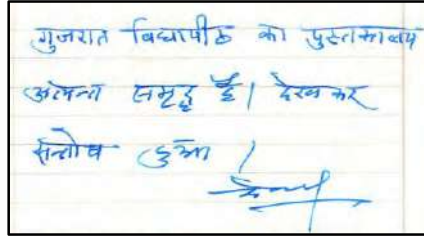 गुजरात विद्यापीठ का पुस्तकालय
अत्यन्त समृद्ध है। देखकर
सन्तोष हुआ।